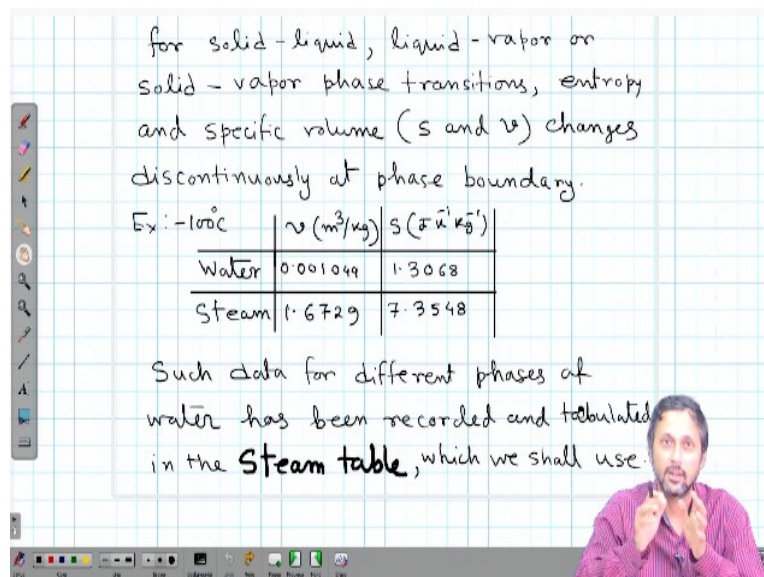 for solid-liquid, liquid-vapor or
solid-vapor phase transitions, entropy
and specific volume (s and v) changes
discontinuously at phase boundary.
Ex:-100°C v (m³/kg) S (J K⁻¹ kg⁻¹)
Water 0.001049 1.3068
Steam 1.6729 7.3548
Such data for different phases of
water has been recorded and tabulated
in the Steam table, which we shall use.